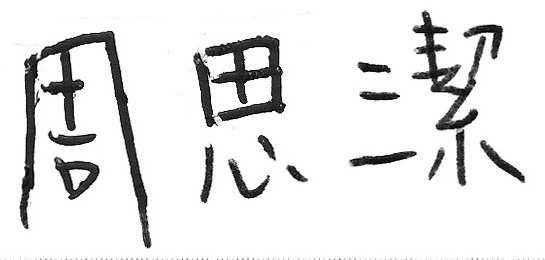 周思潔